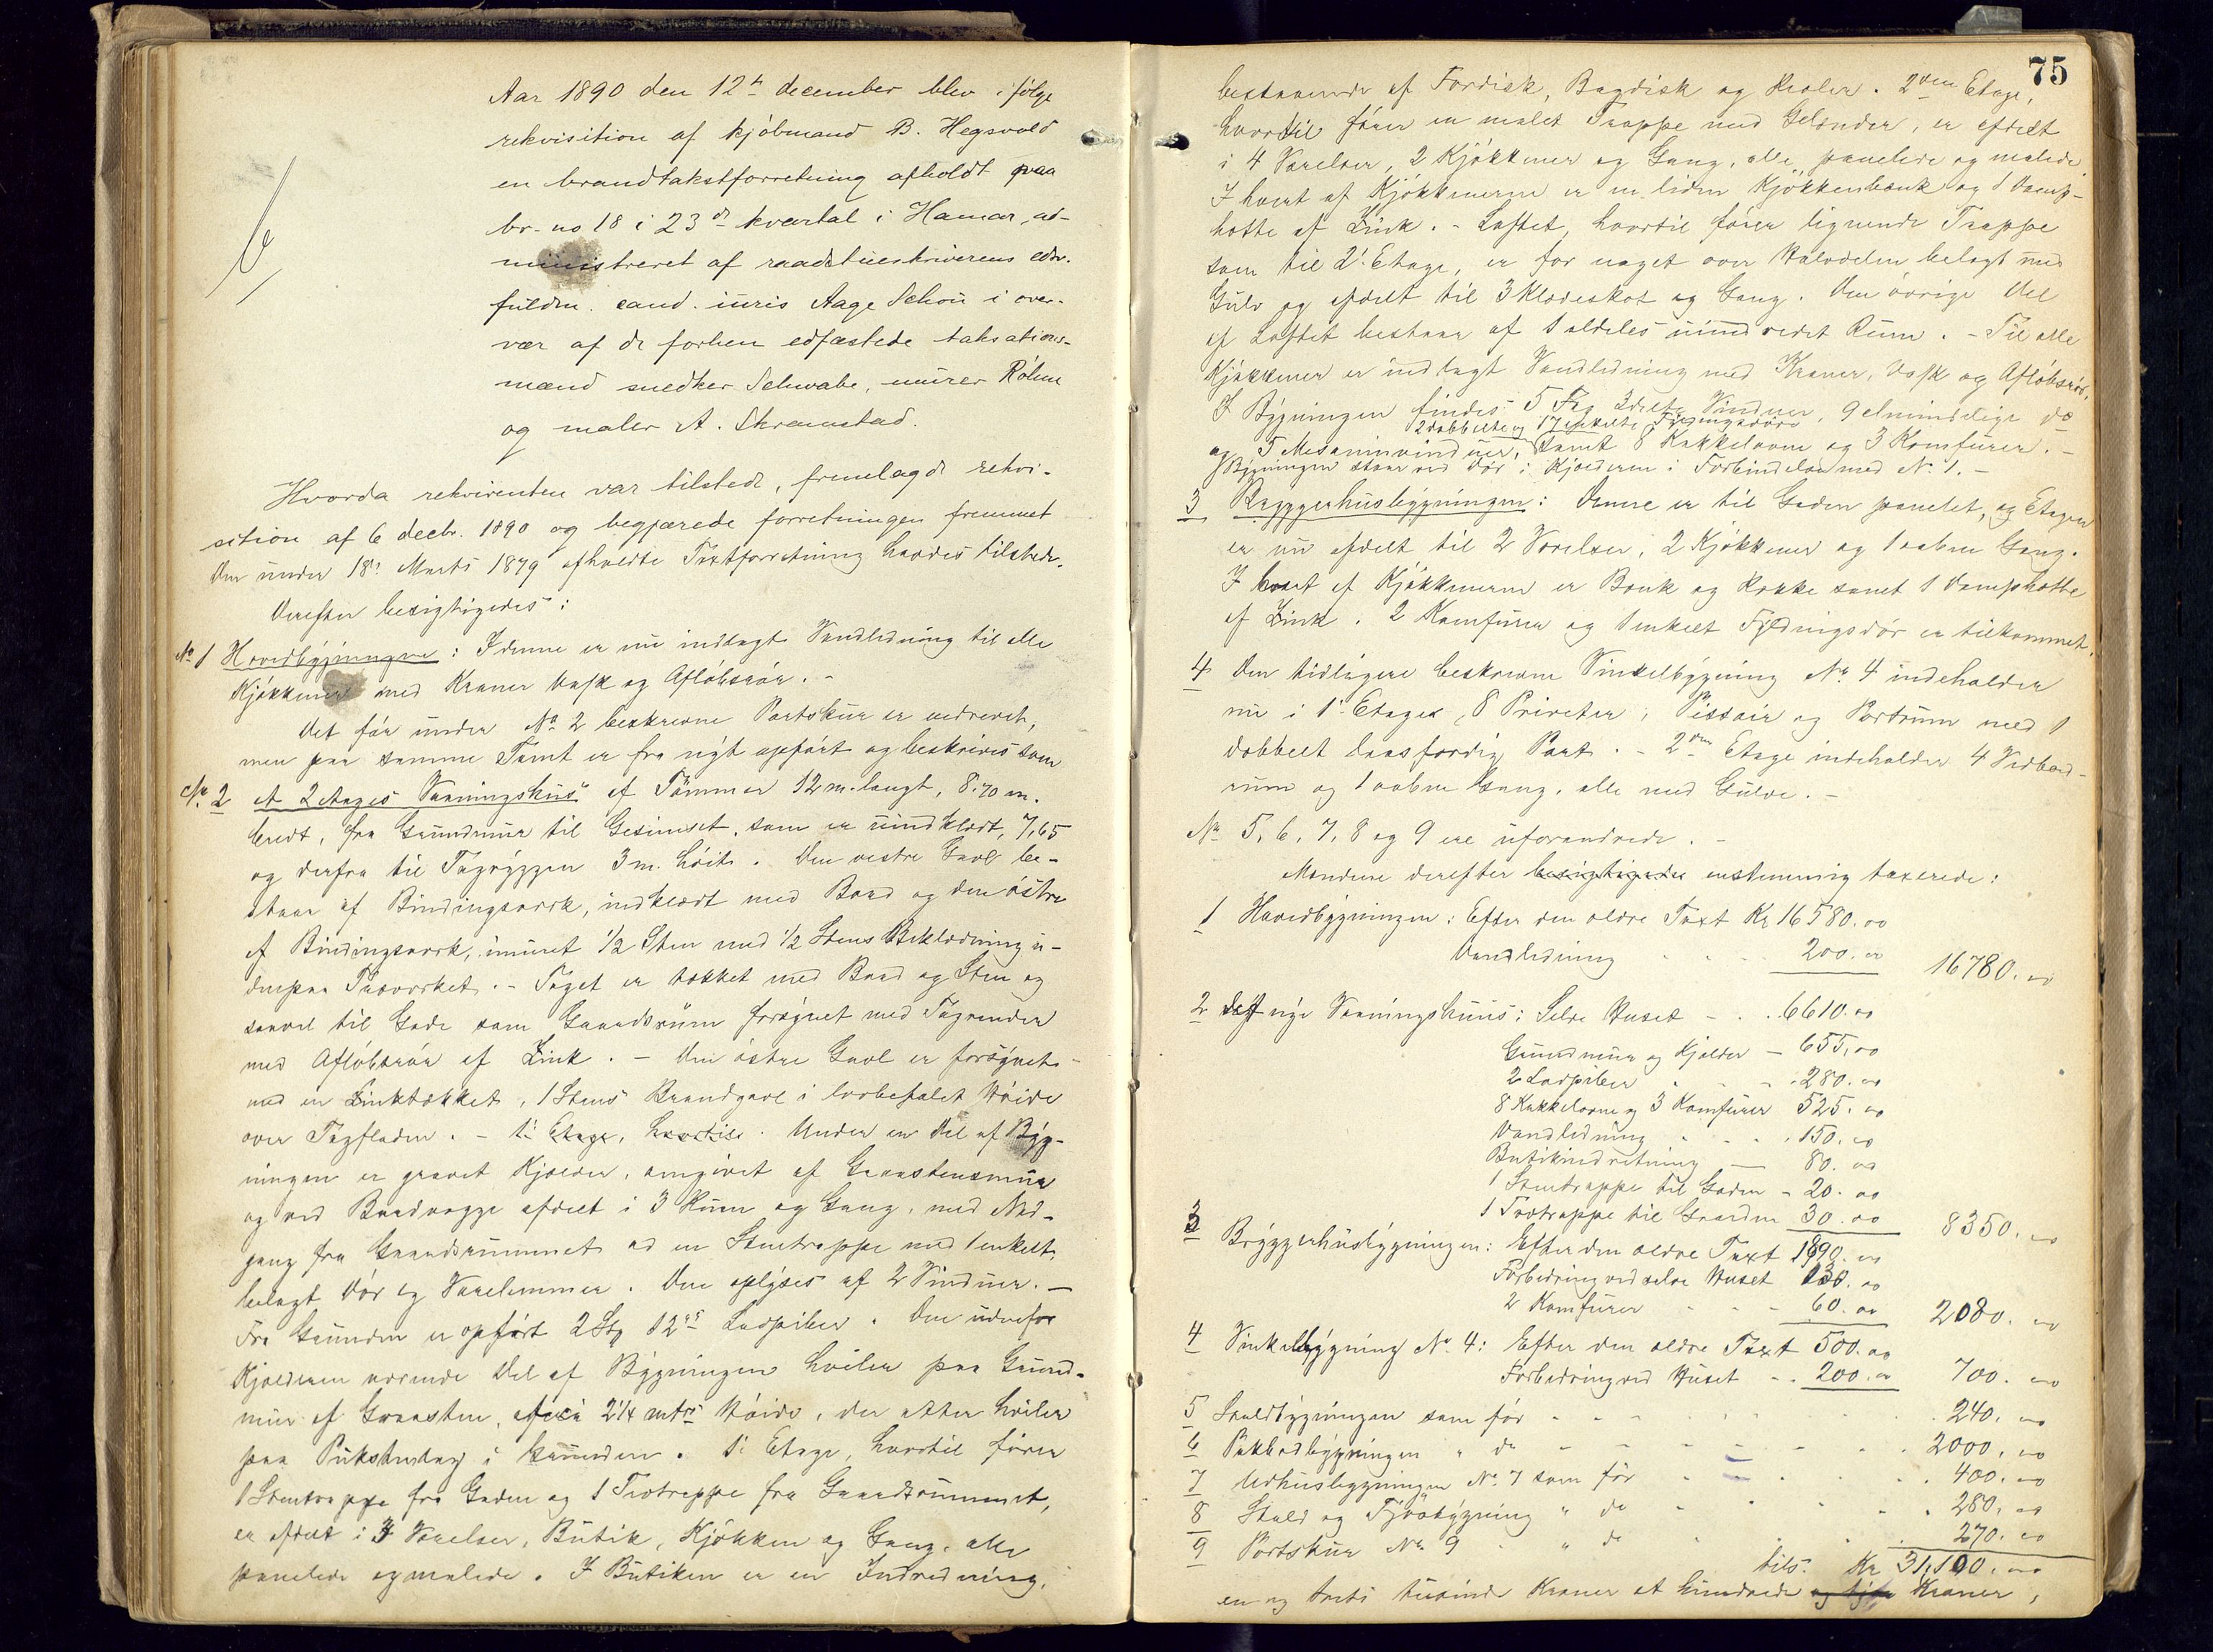 Aar 1890 den 12te december blev ifølge
rekvisition af kjøbmand B. Hegsvold
en brandtakstforretning afholdt paa
br. no 18 i 23de kvartal i Hamar, ad-
ministreret af raadstueskriverens edsv.
fuldm. cand. juris Aage Schou i over-
vær af de forhen edfæstede taksations-
mænd snedker Schwabe, murer Röhne
og maler A. Skramstad.
Hvorda rekvirenten var tilstede, fremlagde rekvi-
sition af 6 decbr. 1890 og begjærede forretningen fremmet
Den under 18de Marts 1879 afholdte Taxtforretning havdes tilstede.
Derefter besigtigedes:
No 1 Hovedbygningen: I denne er nu indlagt Vandledning til alle
Kjøkkener med Kraner Vask og Afløbsrør. -
Det før under No 2 beskrevne Portskur er nedrevet,
men paa samme Tomt er fra nyt opført og beskrives som
No 2 et 2 Etages Vaaningshus af Tømmer 12 m. langt, 8,70 m.
bredt, fra Grundmur til Gesimset, som er indklædt, 7,65
og derfra til Tagryggen 3 m. høit. Den vestre Gavl be-
staar af Bindingsverk, indklædt med Bord og den østre
af Bindingsverk, inmuret 1/2 Sten med 1/2 Stens Beklædning u-
denpaa Træverket. - Taget er tækket med Bord og Sten og
saavel til Gade som Gaardsrum forsynet med Tagrender
med Afløbsrør af Zink. - Den østre Gavl er forsynet
med en Zinktækket, 1 Stens Brandgavl i lovbefalet Høide
over Tagfladen. - 1ste Etage, hvortil. Under en Del af Byg-
ningen er gravet Kjælder, omgivet af Graastensmur
og ved Bordvægge afdelt i 3 Rum og Gang, med Ned-
gang fra Gaardsrummet ad en Stentrappe med 1 enkelt
belagt Dør og Varelemmer. Den oplyses af 2 Vinduer. -
Fra Grunden er opført 2 Stk 12" Lodpiber. Den udenfor
Kjælderen værende Del af Bygningen hviler paa Grund-
mur af Graasten, af ca 2 1/4 mtrs Høide, der atter hviler
paa Pukstenlag i Grunden. 1ste Etage, hvortil fører
1 Stentrappe fra Gaden og 1 Trætrappe fra Gaardsrummet,
er afdelt i 3 Værelser, Butik, Kjøkken og Gang, alle
panelede og malede. I Butiken er en Indredning,
75
bestaaende af Fordisk, Bagdisk og Reoler. 2den Etage,
hvortil fører en malet Trappe med Gelænder, er afdelt
i 4 Værelser, 2 Kjøkkener og Gang, alle panelede og malede
I hvert af Kjøkkenerne er en liden Kjøkkenbænk og 1 Damp-
hætte af Zink. - Loftet, hvortil fører lignende Trappe
som til 2. Etage, er for noget over Halvdelen belagt med
Gulv og afdelt til 3 Klædeskot og Gang. Den øvrige Del
af Loftet bestaar af 1 aldeles uindredet Rum. - Til alle
Kjøkkener er indlagt Vandledning med Kraner, Vask og Afløbsrør.
I Bygningen findes 5 Fag 3delte Vinduer, 9 almindelige do
2 dobbelte og 17 enkelte Fyldingsdøre
og 5 Mesaninvinduer, samt 8 Kakkelovne og 3 Komfurer. -
Bygningen staar ved Dør i Kjælderen i Forbindelse med No 1. -
3 Bryggerhusbygningen: Denne er til Gaden panelet, og Etagen
er nu afdelt til 2 Værelser, 2 Kjøkkener og 1 aaben Gang.
I hvert af Kjøkkenerne er Bænk og Række samt 1 Damphætte
af Zink. 2 Komfurer og 1 enkelt Fyldingsdør er tilkommet.
4 Den tidligere beskrevne Vinkelbygning No 4 indeholder
nu i 1ste Etage 8 Priveter, Pissoir og Portrum med 1
dobbelt laasfærdig Port. - 2den Etage indeholder 4 Vedbod-
rum og 1 aaben Gang, alle med Gulve. -
No 5, 6, 7, 8 og 9 ere uforandrede. -
Mændene derefter besigtigede enstemmig taxerede:
1 Hovedbygningen: Efter den ældre Taxt Kr 16580.00
Vandledning 200.00 16780.00
2 Det nye Vaaningshuus: Selve Huset - 6610.00
Grundmur og Kjælder - 655.00
2 Lodpiber - 280.00
8 Kakkelovne og 3 Komfurer 525.00
Vandledning 150.00
Butikindretning - 80.00
1 Stentrappe til Gaden - 20.00
1 Trætrappe til Gaarden 30.00 8350.00
3 Bryggerhusbygningen: Efter den ældre Taxt 1890.00
Forbedring ved selve Huset 130.00
2 Komfurer - 60.00 2080.00
4 Vinkelbygning No 4: Efter den ældre Taxt 500.00
Forbedring ved Huset - 200.00 700.00
5 Staldbygningen som før - 240.00
6 Pakbodbygningen " do - 2000.00
7 Udhusbygningen No 7 som før 400.00
8 Stald og Fjøsbygning " do 280.00
9 Portskur No 9 " do 270.00
tils. Kr 31,100.00
en og treti tusinde Kroner et hundrede og ti Kroner,